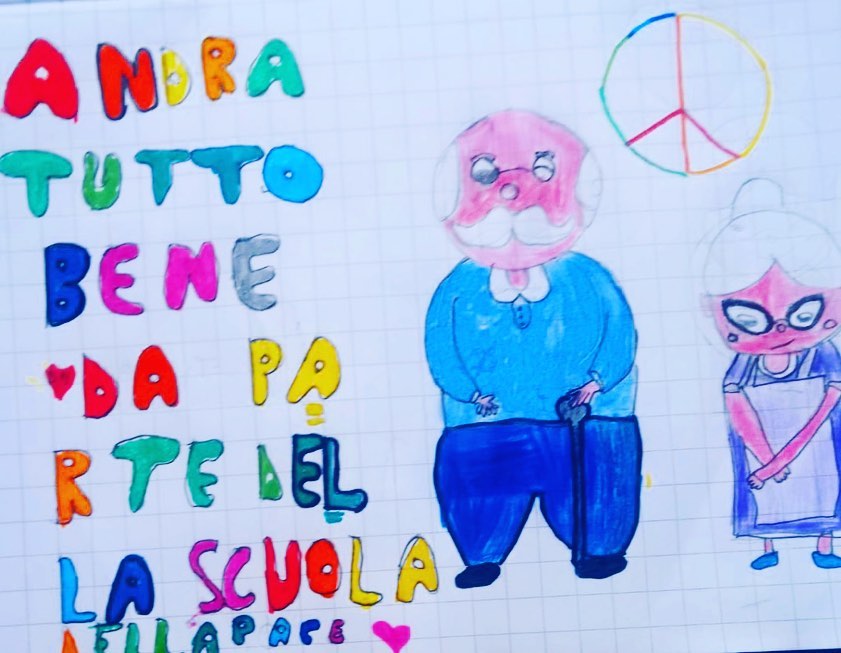 ANDRA
TUTTO
BENE
DA PA
RTE DEL
LA SCUOLA
DELLA PACE